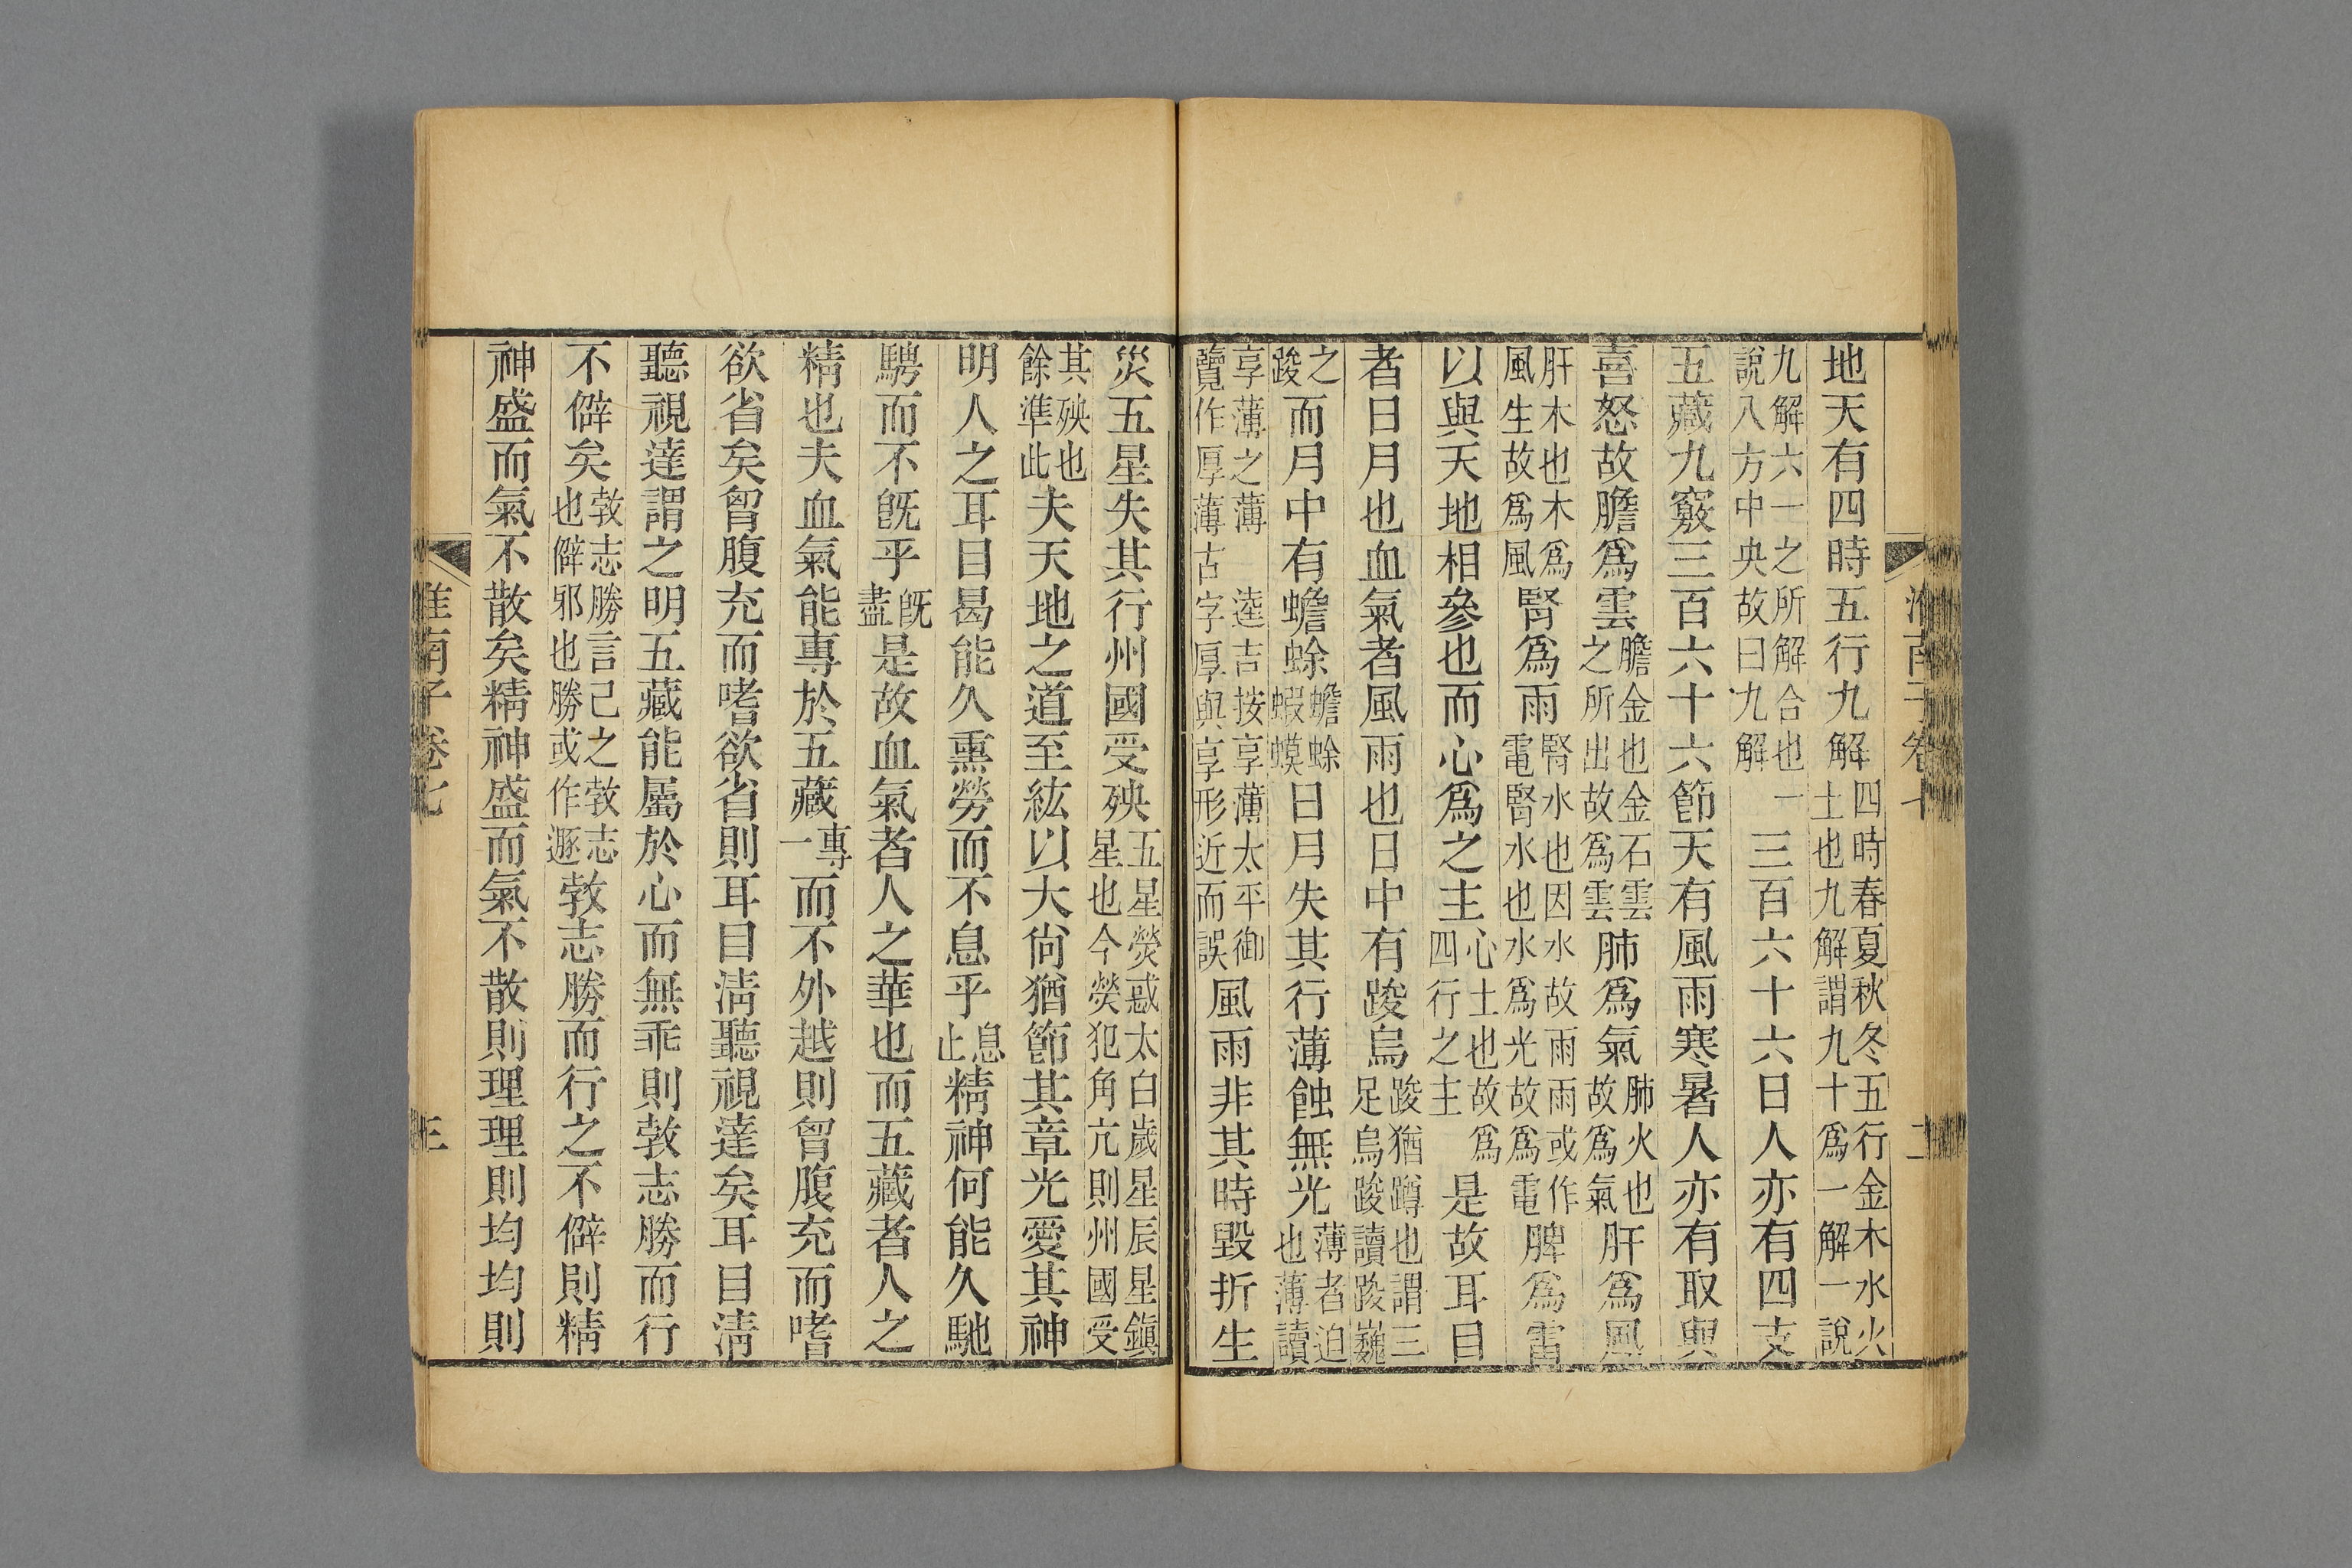 地天有四時五行九解四時春夏秋冬五行金木水火土也九解謂九十爲一解一說
九解六一之所解合也一說八方中央故曰九解三百六十六日人亦有四支
五藏九竅三百六十六節天有風雨寒暑人亦有取與
喜怒故膽爲雲膽金也金石雲之所出故爲雲肺爲氣肺火也故爲氣肝爲風
肝木也木爲風生故爲風腎爲雨腎水也因水故雨雨或作電腎水也水爲光故爲電脾爲雷
以與天地相參也而心爲之主心土也故爲四行之主是故耳目
者日月也血氣者風雨也日中有踆烏踆猶蹲也謂三足烏踆讀踆巍
之踆而月中有蟾蜍蟾蜍蝦蟆日月失其行薄蝕無光薄者迫也薄讀
享薄之薄逵吉按享薄太平御覽作厚薄古字厚與享形近而誤風雨非其時毀折生
災五星失其行州國受殃五星熒惑太白歲星辰星鎭星也今熒犯角亢則州國受
其殃也餘準此夫天地之道至紘以大尙猶節其章光愛其神
明人之耳目曷能久熏勞而不息乎息止精神何能久馳
騁而不旣乎旣盡是故血氣者人之華也而五藏者人之
精也夫血氣能專於五藏專一而不外越則曾腹充而嗜
欲省矣曾腹充而嗜欲省則耳目淸聽視達矣耳目淸
聽視達謂之明五藏能屬於心而無乖則敦志勝而行
不僻矣敦志勝言己之敦志也僻邪也勝或作遯敦志勝而行之不僻則精
神盛而氣不散矣精神盛而氣不散則理理則均均則
淮南子卷七 三